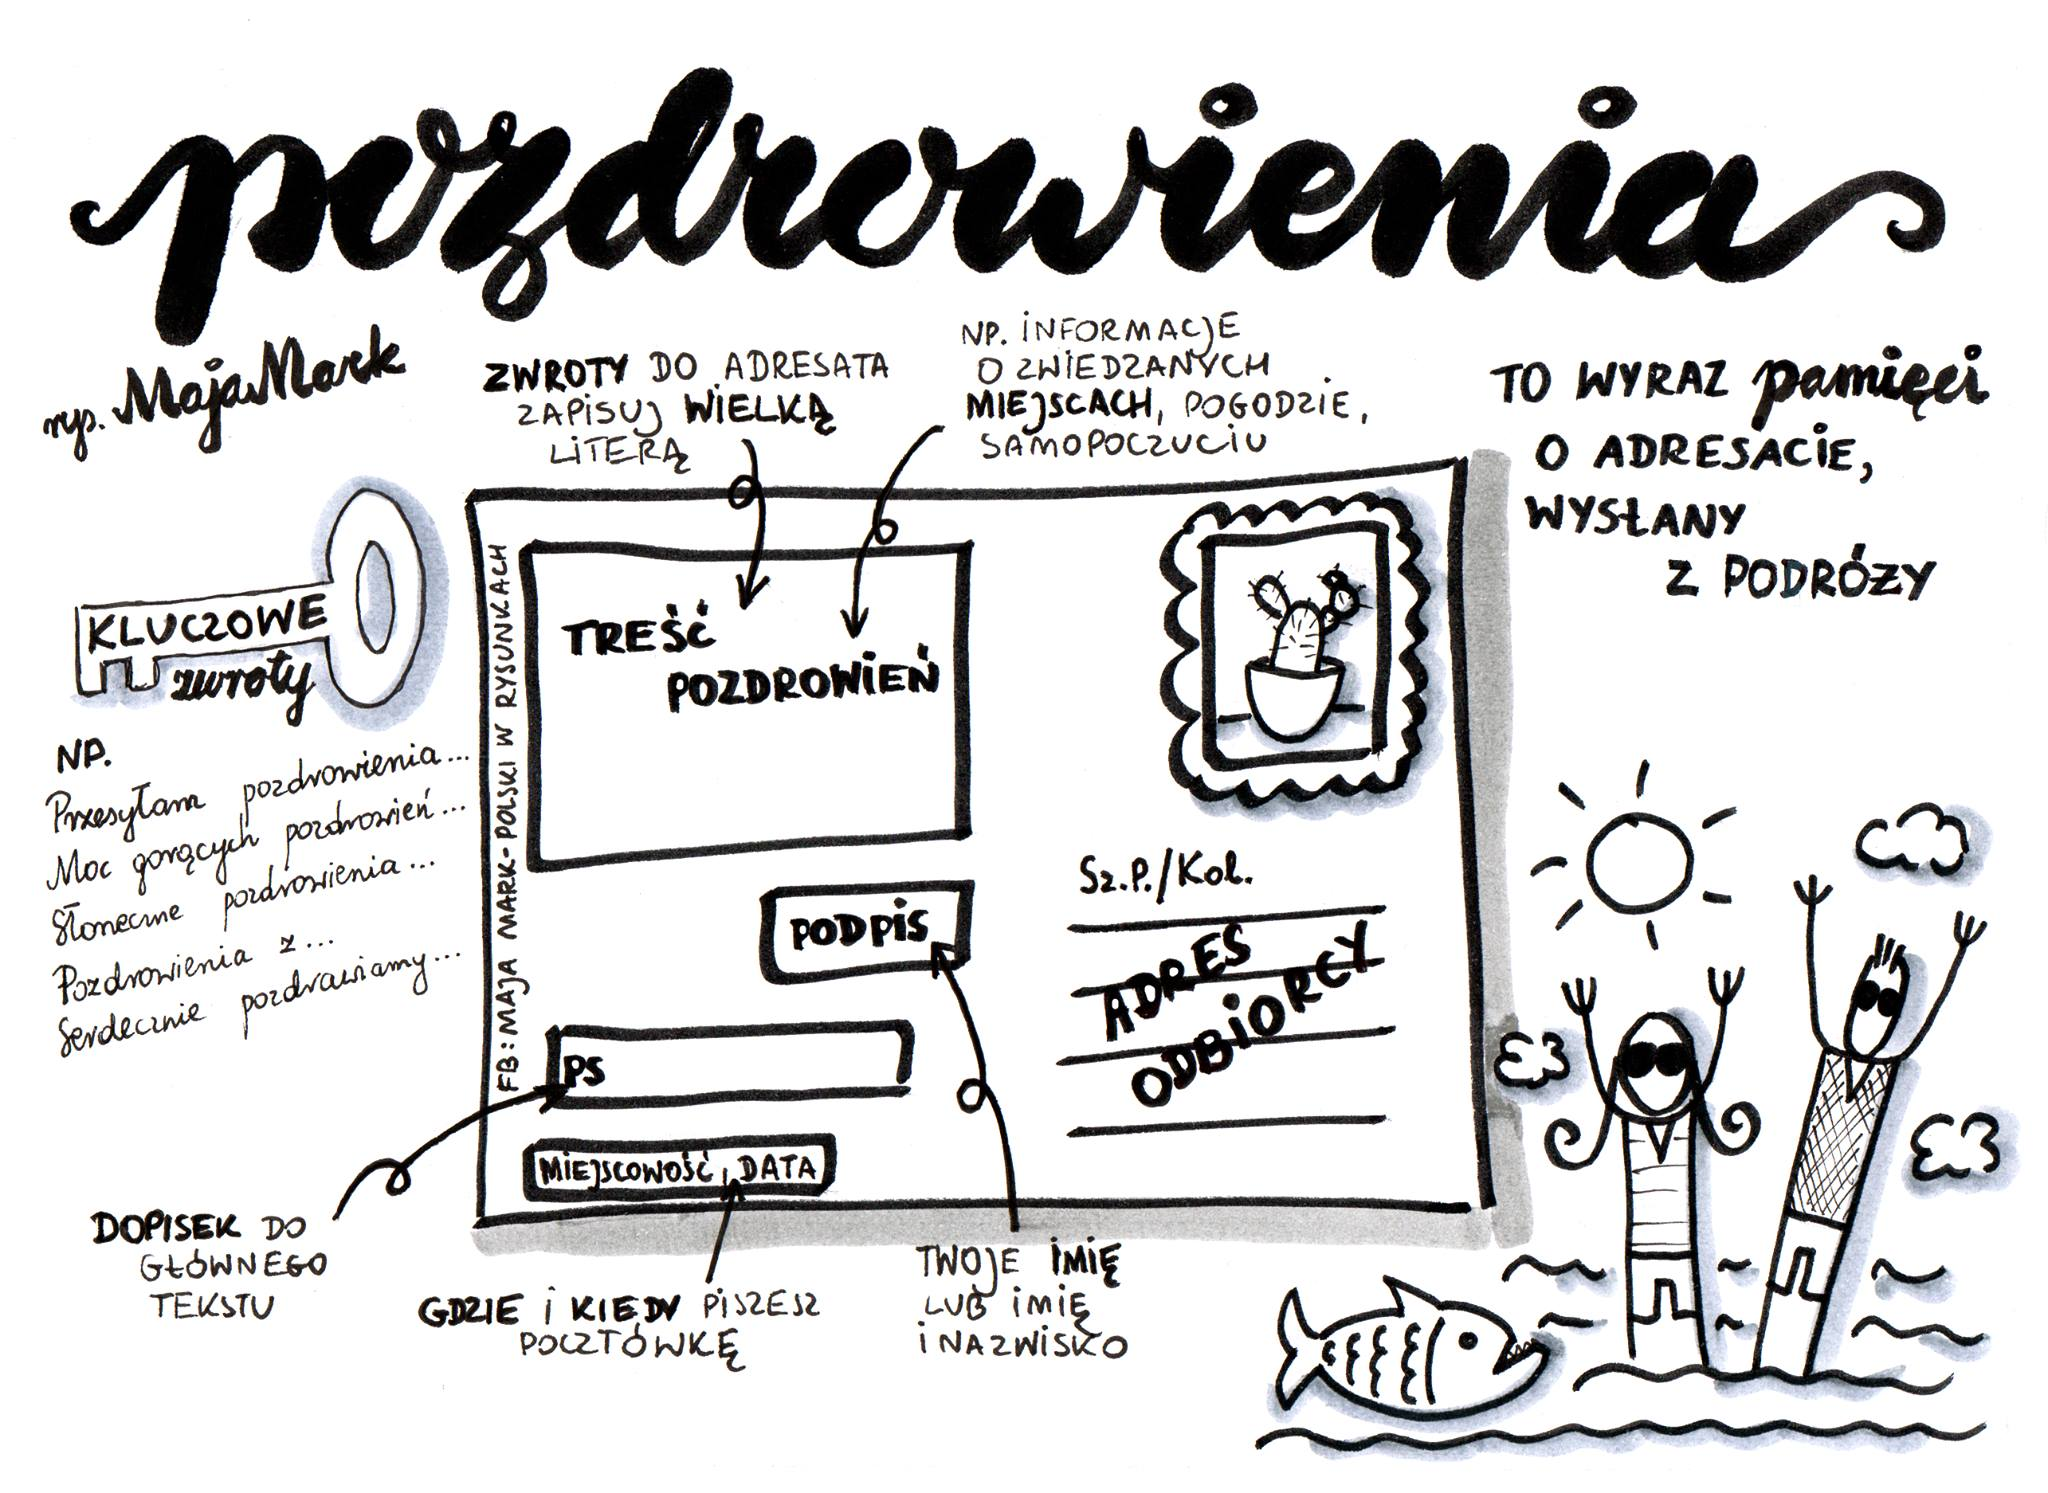 pozdrowienia
rys. Maja Mark
ZWROTY DO ADRESATA
ZAPISUJ WIELKĄ
LITERĄ
NP. INFORMACJE
O ZWIEDZANYCH
MIEJSCACH, POGODZIE,
SAMOPOCZUCIU
TO WYRAZ pamięci
O ADRESACIE,
WYSŁANY
Z PODRÓŻY
KLUCZOWE
zwroty
NP.
Przesyłam pozdrowienia...
Moc gorących pozdrowień...
Słoneczne pozdrowienia...
Pozdrowienia z...
Serdecznie pozdrawiamy...
FB: MAJA MARK - POLSKI W RYSUNKACH
TREŚĆ
POZDROWIEŃ
PODPIS
PS
MIEJSCOWOŚĆ, DATA
Sz.P./Kol.
ADRES
ODBIORCY
DOPISEK DO
GŁÓWNEGO
TEKSTU
GDZIE i KIEDY PISZESZ
POCZTÓWKĘ
TWOJE IMIĘ
LUB IMIĘ
I NAZWISKO